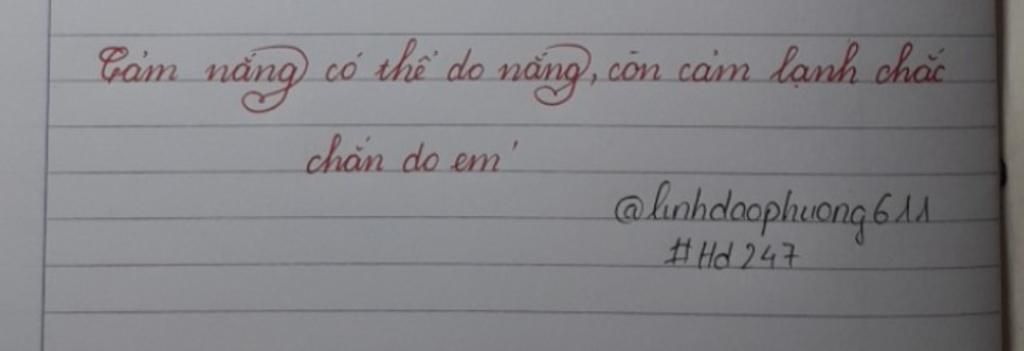 Cảm nắng có thể do nắng, còn cảm lạnh chắc
chắn do em'
@linhdaophuong611
#Hd247